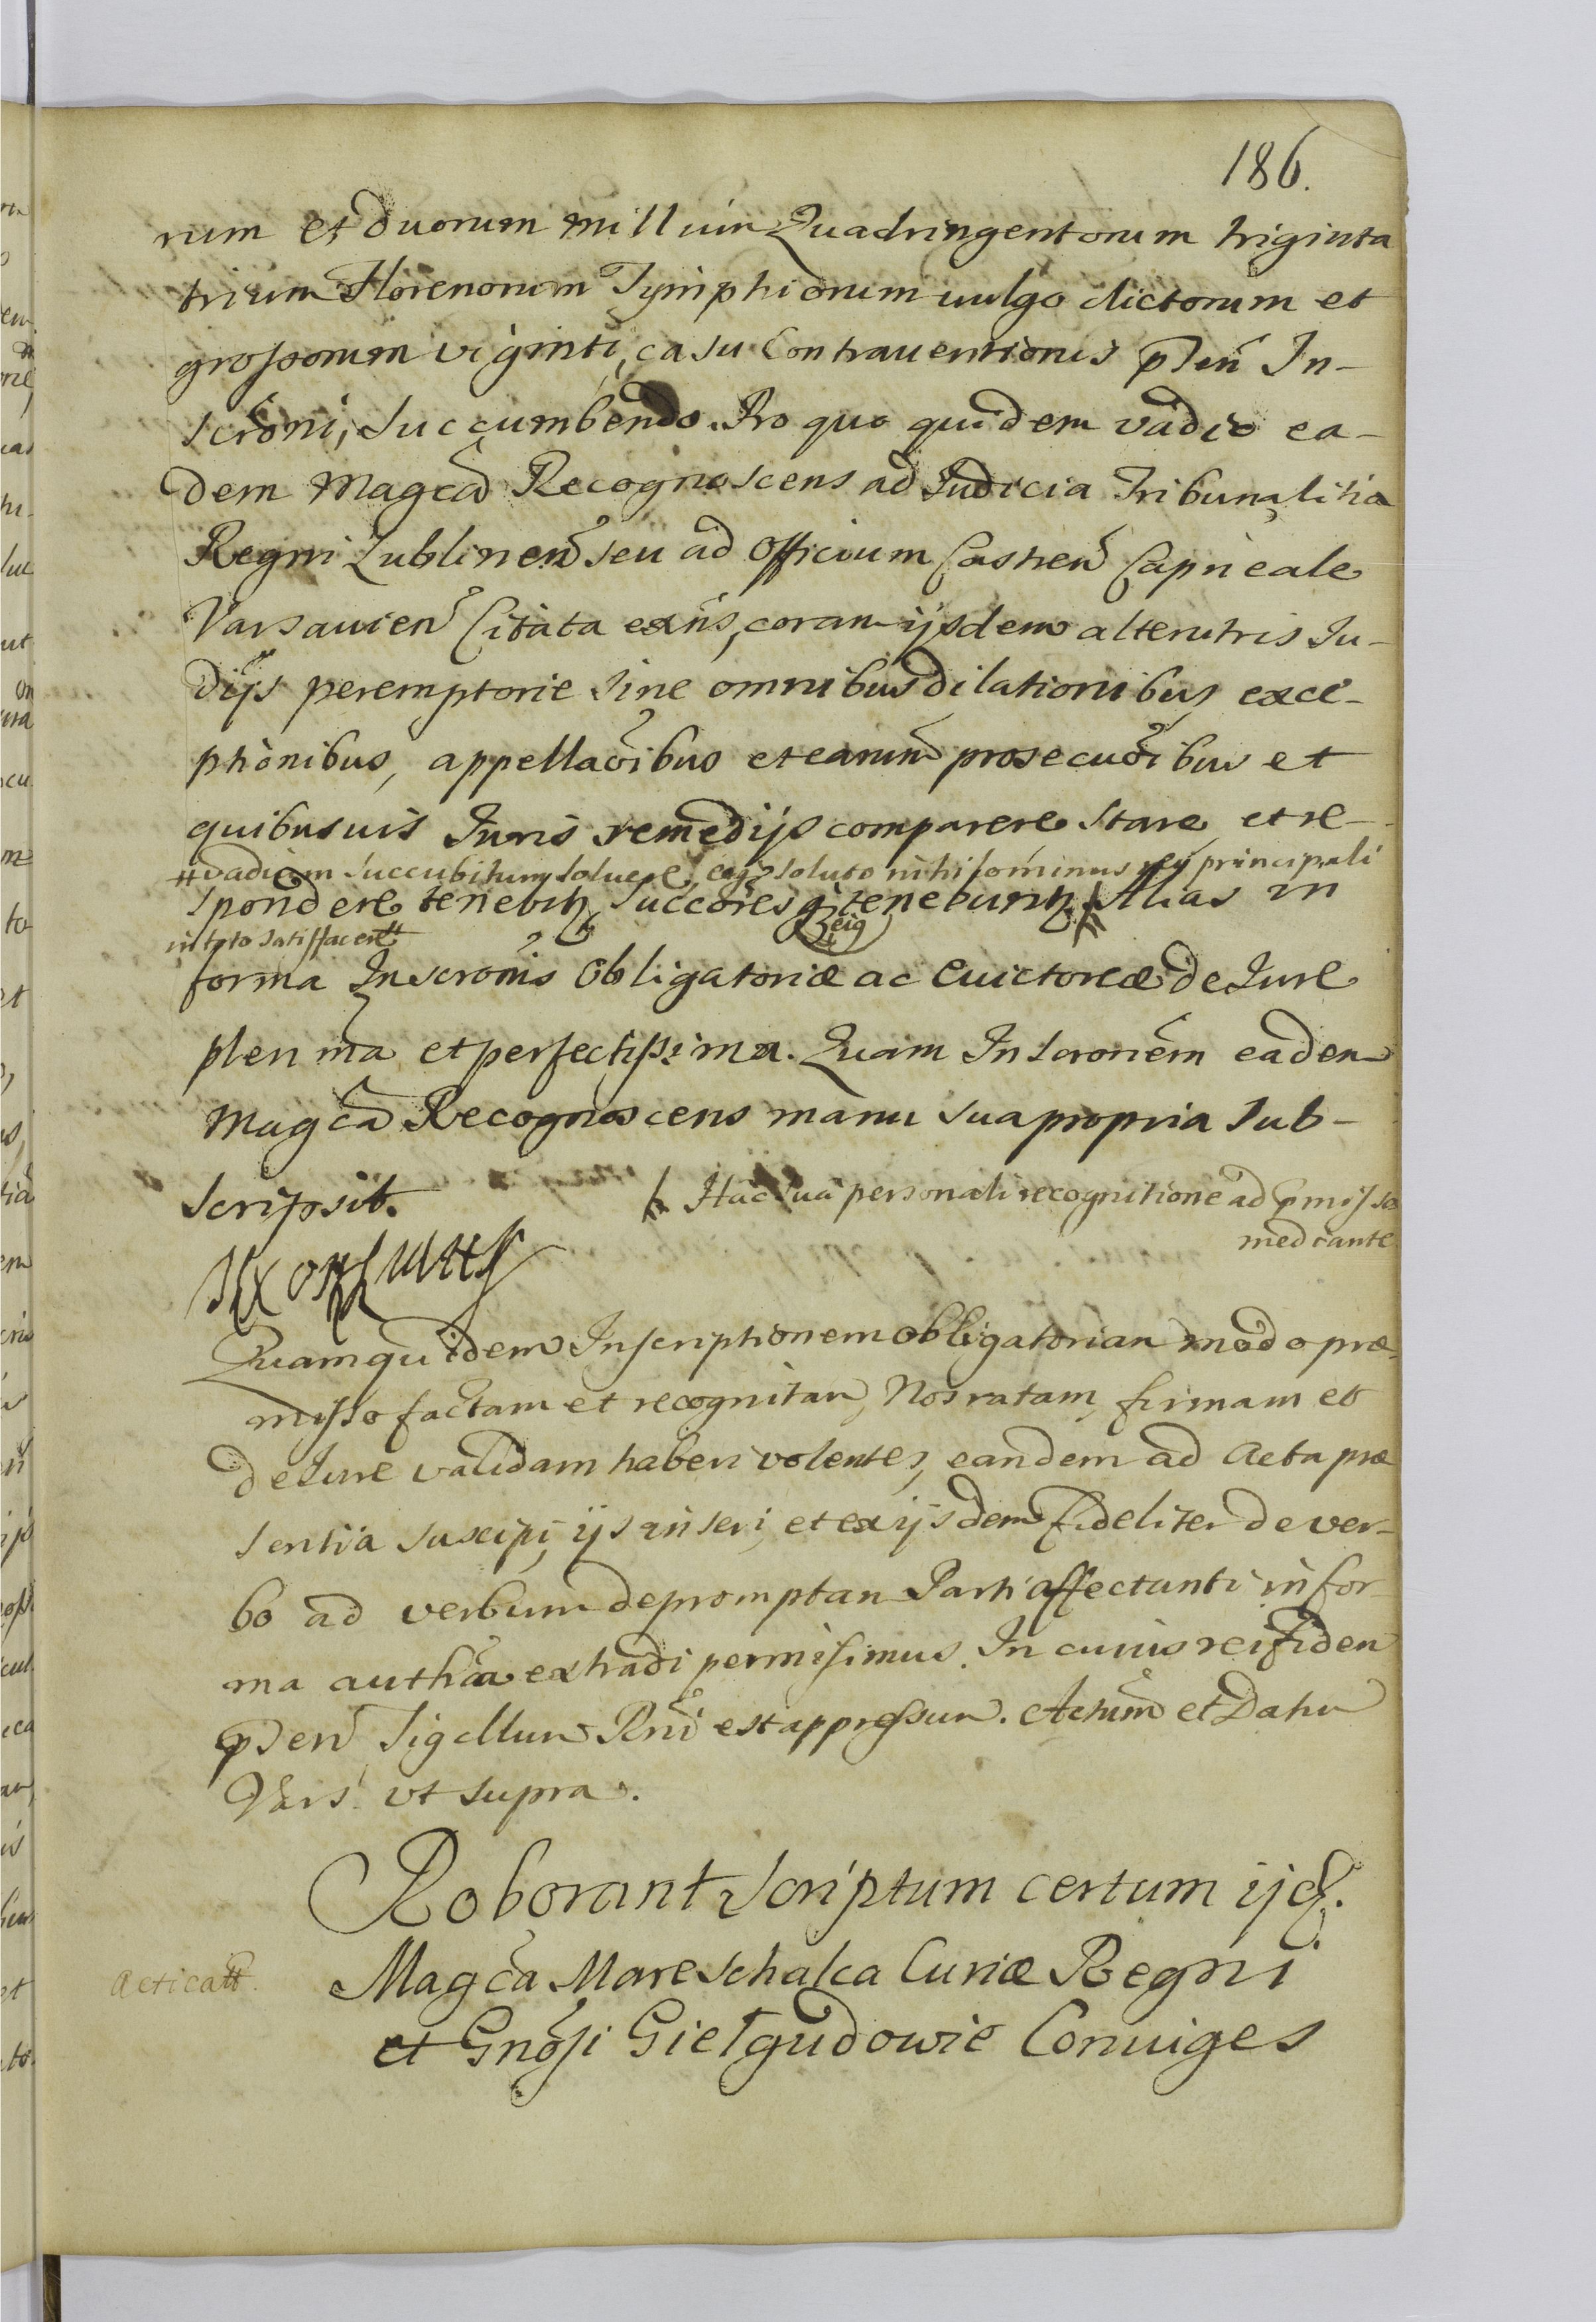 186.
rum et duorum millium Quadringentorum triginta
trium Florenorum Tymphionum uulgo dictorum et
grossorum viginti, casu Contrauentionis p̃ñti In-
scrõni, succumbendo. Pro quo quidem vadio ea-
dem Magcã Recognoscens ad Judicia Tribunalitia
Regni Lublineñ seu ad Officium Castreñ Capneale
Varsauieñ Citata exñs, coram ijsdem alterutris Ju-
dijs peremptorie sine omnibus dilationibus exce-
ptionibus, appellaõibus et earum prosecuõibus et
quibusuis Juris remedijs comparere stare et re-
# vadium succubitum soluere, eoq3 soluto nihilominus rei principali
spondere tenebit, succõres q3 eig tenebunt. Alias in
in toto satisfacere #
forma Inscrõnis Obligatoriæ ac Euictoreæ de Jure
plenima et perfectissima. Quam Inscronẽm eadem
Magcã Recognoscens manu sua propria sub-
scripsit.
Hac sua personali recognitione ad p̃missa
mediante
Quamquidem Inscriptionem obligatoriam modo præ-
misso factam et recognitam, Nos ratam, firmam et
de Jure validam haberi volentes, eandem ad Acta præ
sentia suscipi, ijs inseri, et ex ijsdem fideliter de ver-
bo ad verbum depromptam Parti affectanti in for-
ma authã extradi permisimus. In cuius rei fidem
p̃señ Sigillum Rñi est appressum. Actum et Datum
Vars. ut supra.
Roborant Scriptum certum ijd.
Acticatt.
Magcã Mareschalca Curiæ Regni
et Gnõsi Giełgudowie Coniuges